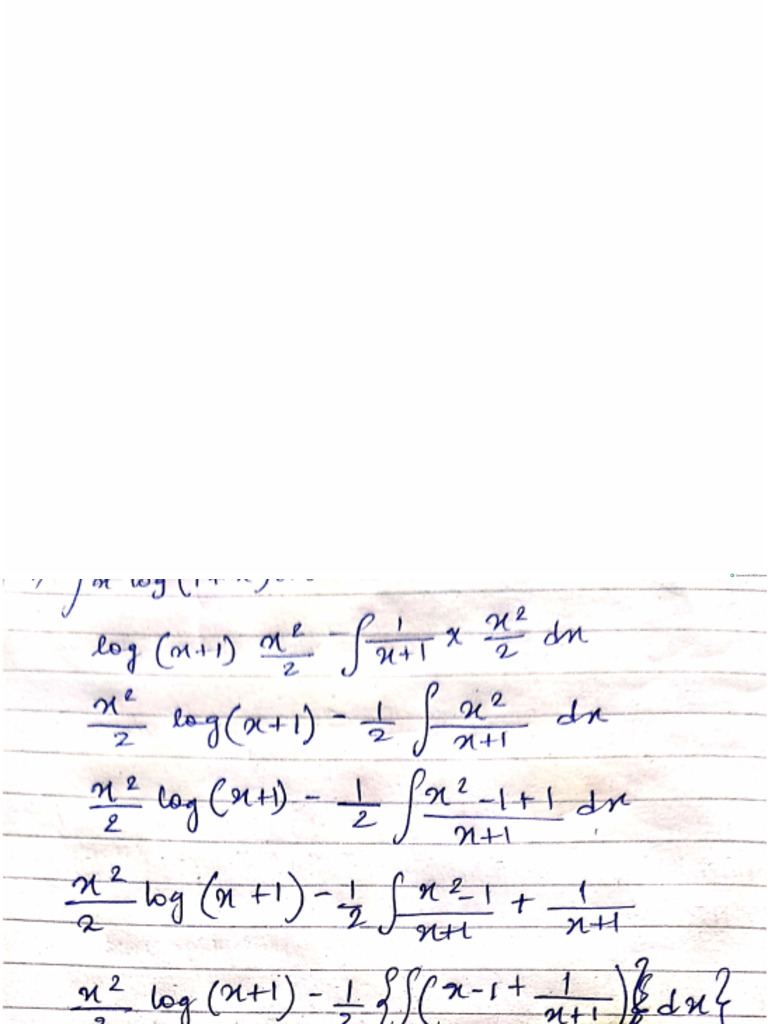 ∫x log(1+x)
log (x+1) x²/2 - ∫ 1/(x+1) × x²/2 dx
x²/2 log(x+1) - 1/2 ∫ x²/(x+1) dx
x²/2 log(x+1) - 1/2 ∫ (x²-1+1)/(x+1) dx
x²/2 log(x+1) - 1/2 ∫ (x²-1)/(x+1) + 1/(x+1)
x²/2 log(x+1) - 1/2 {∫(x-1+ 1/(x+1)) dx}